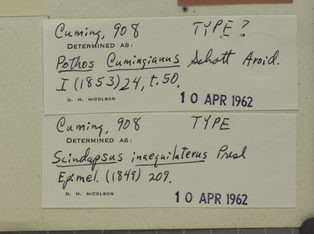 Cuming, 908 TYPE?
DETERMINED AS:
Pothos Cumingianus Schott Aroid.
I (1853) 24, t. 50.
D. H. NICOLSON 10 APR 1962
Cuming, 908 TYPE
DETERMINED AS:
Scindapsus inaequilaterus Presl
Epimel. (1849) 209.
D. H. NICOLSON 10 APR 1962